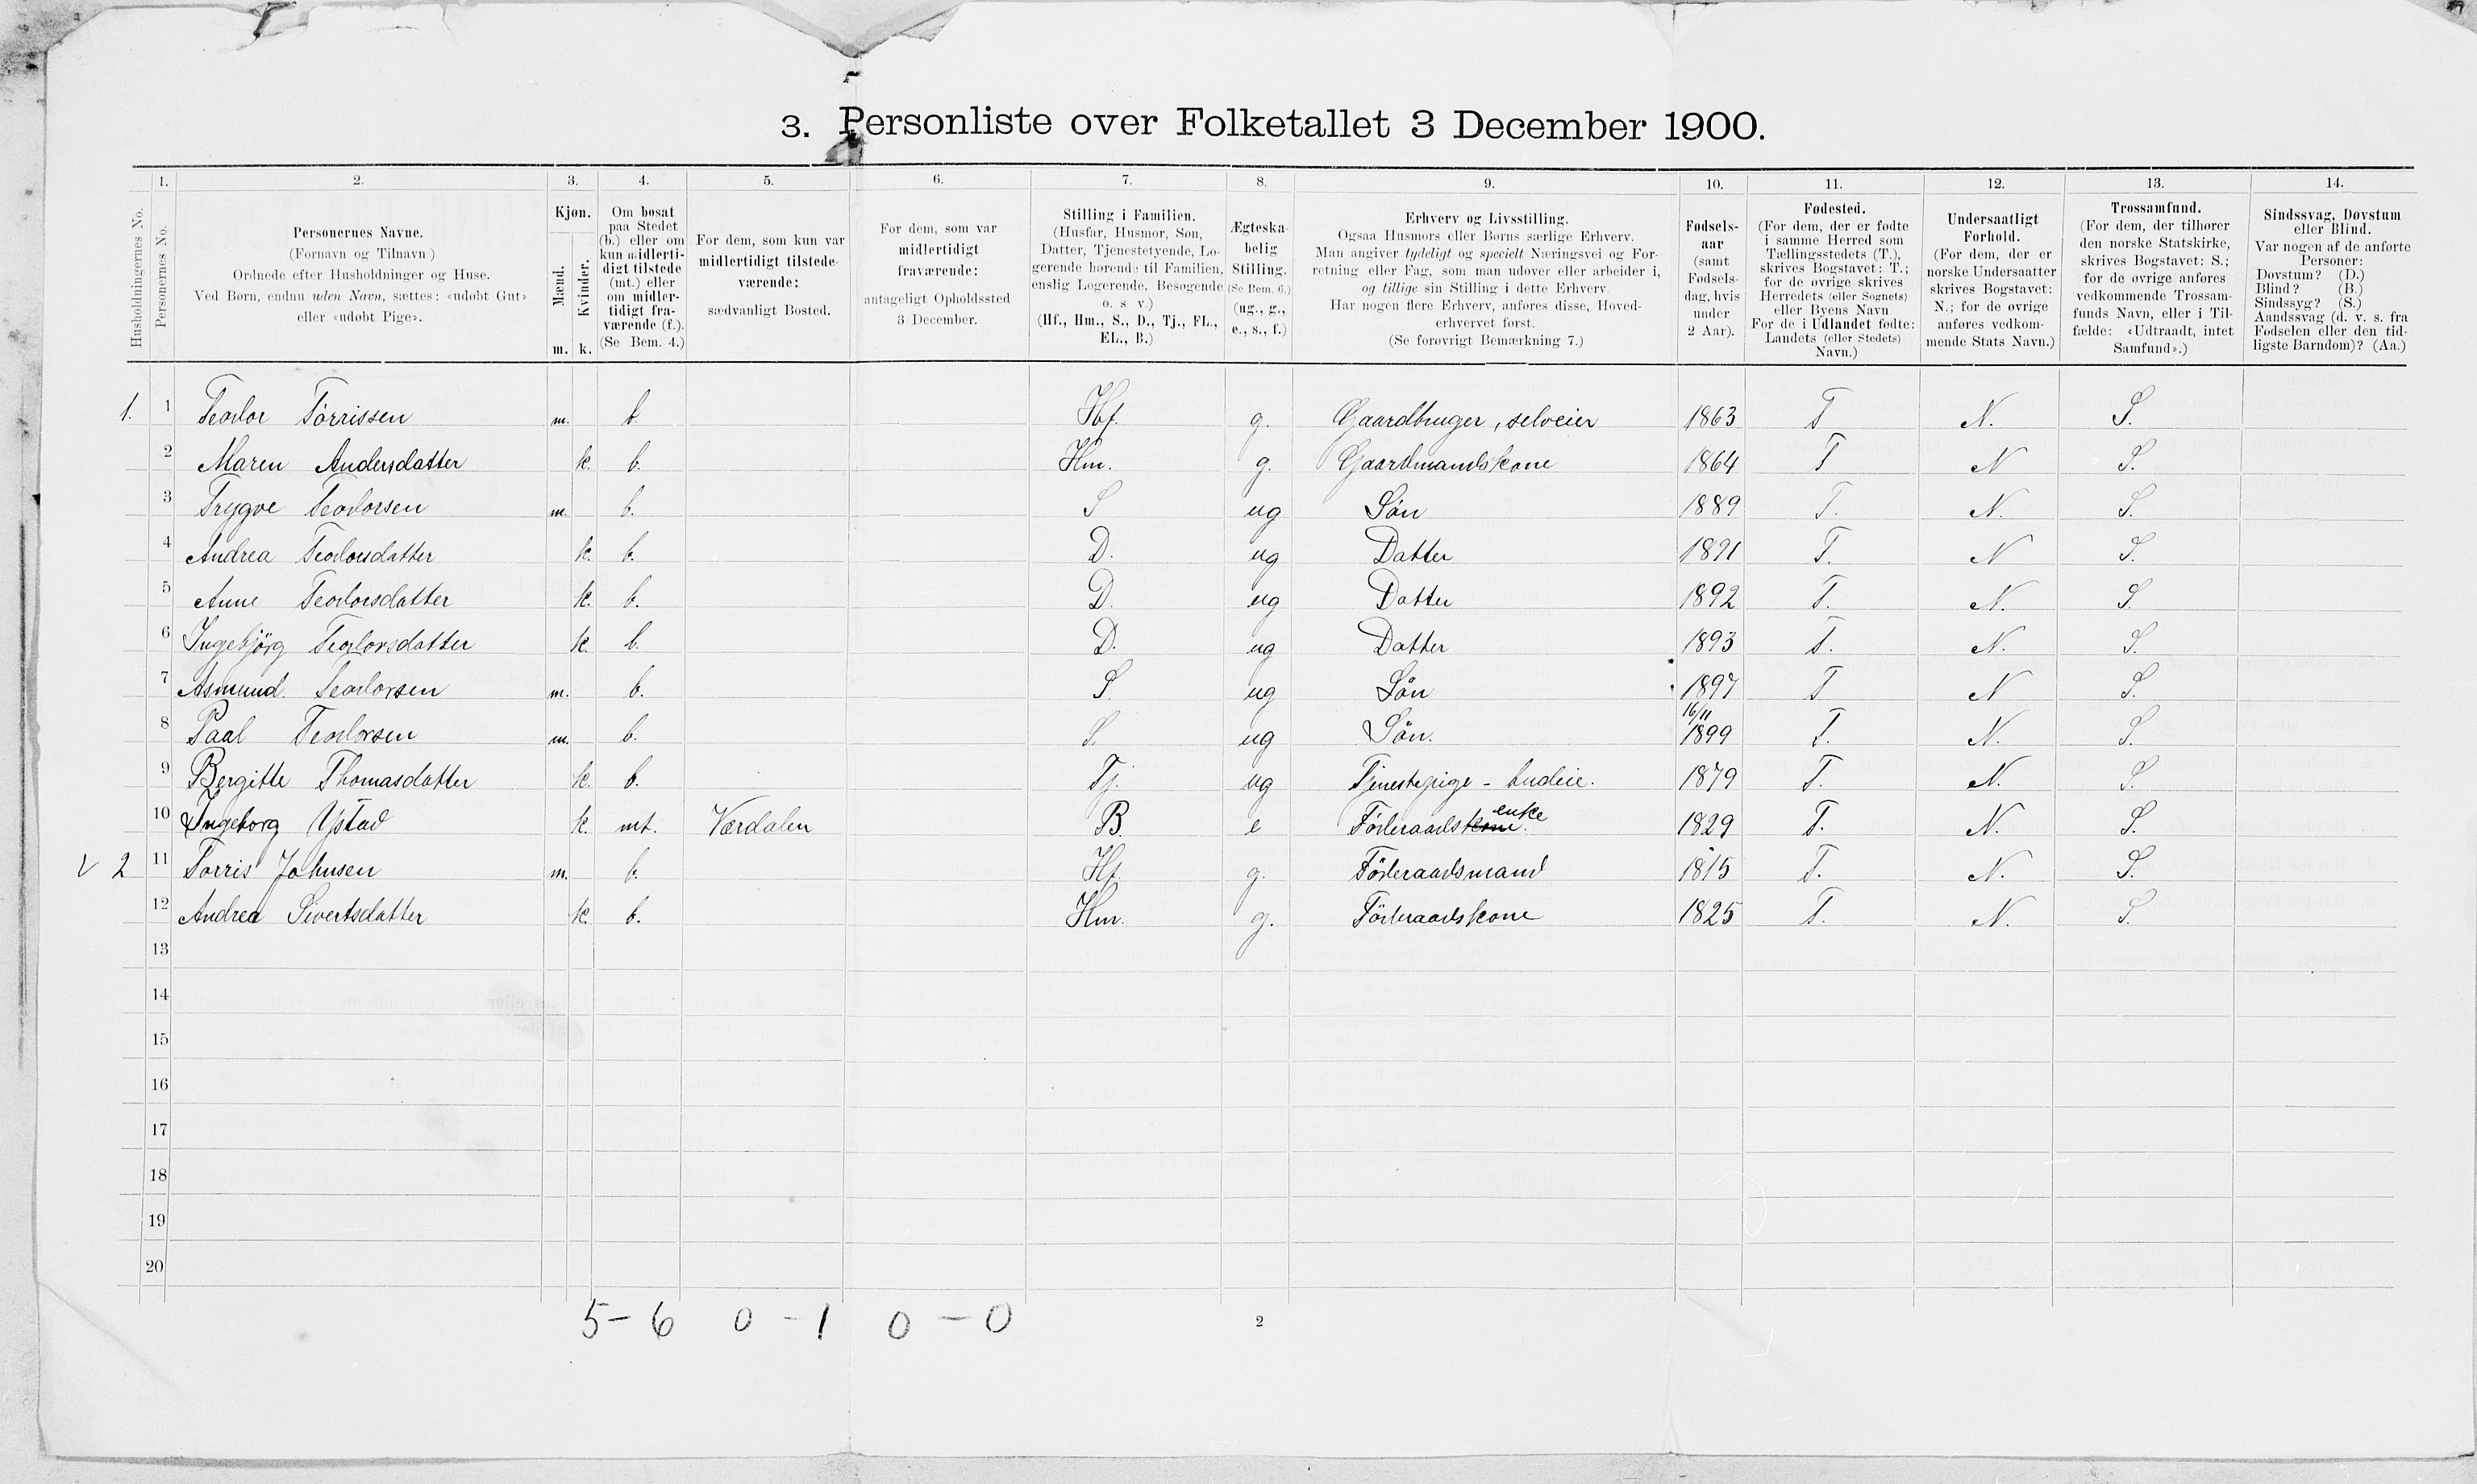 3. Personliste over Folketallet 3 December 1900.
1. 2. 3. 4. 5. 6. 7. 8. 9. 10. 11. 12. 13. 14.
Husholdningernes No.
Personernes No.
Personernes Navne.
(Fornavn og Tilnavn)
Ordnede efter Husholdninger og Huse.
Ved Børn, endnu uden Navn, sættes: «udøbt Gut»
eller «udøbt Pige».
Kjøn.
Mænd.
Kvinder.
m. k.
Om bosat
paa Stedet
(b.) eller om
kun midlerti-
digt tilstede
(mt.) eller
om midler-
tidigt fra-
værende (f.).
(Se Bem. 4.)
For dem, som kun var
midlertidigt tilstede-
værende:
sædvanligt Bosted.
For dem, som var
midlertidigt
fraværende:
antageligt Opholdssted
3 December.
Stilling i Familien.
(Husfar, Husmor, Søn,
Datter, Tjenestetyende, Lo-
gerende hørende til Familien,
enslig Logerende, Besøgende
o. s v.)
(Hf., Hm., S., D., Tj., FL.,
EL., B.)
Ægteska-
belig
Stilling.
(Se Bem. 6.)
(ug., g.,
e., s., f.)
Erhverv og Livsstilling.
Ogsaa Husmors eller Børns særlige Erhverv.
Man angiver tydeligt og specielt Næringsvei og For-
retning eller Fag, som man udøver eller arbeider i,
og tillige sin Stilling i dette Erhverv.
Har nogen flere Erhverv, anføres disse, Hoved-
erhvervet først.
(Se forøvrigt Bemærkning 7.)
Fødsels-
aar
(samt
Fødsels-
dag, hvis
under
2 Aar).
Fødested.
(For dem, der er fødte
i samme Herred som
Tællingsstedets (T.),
skrives Bogstavet: T.;
for de øvrige skrives
Herredets (eller Sognets)
eller Byens Navn
For de i Udlandet fødte:
Landets (eller Stedets)
Navn.)
Undersaatligt
Forhold.
(For dem, der er
norske Undersaatter
skrives Bogstavet:
N.; for de øvrige
anføres vedkom-
mende Stats Navn.)
Trossamfund.
(For dem, der tilhører
den norske Statskirke,
skrives Bogstavet: S.;
for de øvrige anføres
vedkommende Trossam-
funds Navn, eller i Til-
fælde: «Udtraadt, intet
Samfund».)
Sindssvag, Døvstum
eller Blind.
Var nogen af de anførte
Personer:
Døvstum? (D.)
Blind? (B.)
Sindssyg? (S.)
Aandssvag (d. v. s. fra
Fødselen eller den tid-
ligste Barndom)? (Aa.)
1. 1 Teodor Törrissen m. b. Hf. g. Gaardbruger, selveier 1863 T N. S.
2 Maren Andersdatter k. b. Hm. g. Gaardmandskone 1864 T N S.
3 Trygve Teodorsen m. b. S ug Sön 1889 T. N. S.
4 Andrea Teodorsdatter k. b. D. ug Datter 1891 T. N S.
5 Anne Teodorsdatter k. b. D. ug Datter 1892 T. N. S.
6 Ingebjörg Teodorsdatter k. b. D. ug Datter 1893 T. N. S.
7 Asmund. Teodorsen m. b. S. ug Sön 1897 T N S.
8 Paal Teodorsen m. b. S. ug Sön. 16/11 1899 T. N. S.
9 Bergitte Thomasdatter k. b. Tj. ug Tjenestepige - budeie. 1879 T. N. S.
10 Ingeborg Ystad k. mt. Værdalen B. e Föderaadskone enke 1829 T. N. S.
v 2 11 Torris Johnsen m. b. Hf. g. Föderaadsmand 1815 T. N. S.
12 Andrea Sivertsdatter k. b. Hm. g. Föderaadskone 1825 T. N. S.
13
14
15
16
17
18
19
20
5 - 6 0 - 1 0 - 0
2